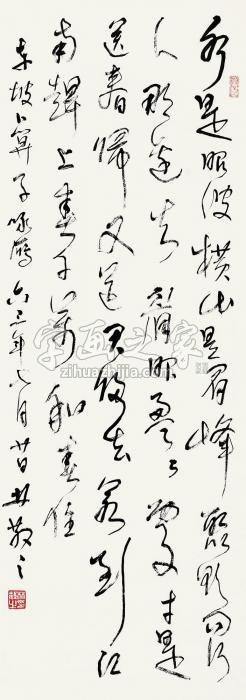 水是眼波横山是眉峰聚欲问行
人那边去眉眼盈盈处才是
送春归又送君归去若到江
南赶上春千万和春住
东坡卜算子咏雁六三年七月廿日林散之
字画之家
zihuazhijia.com